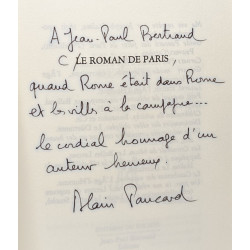 A Jean-Paul Bertrand
LE ROMAN DE PARIS,
quand Rome était dans Rome
et les villes à la campagne...
le cordial hommage d'un
auteur heureux.
Alain Paucard